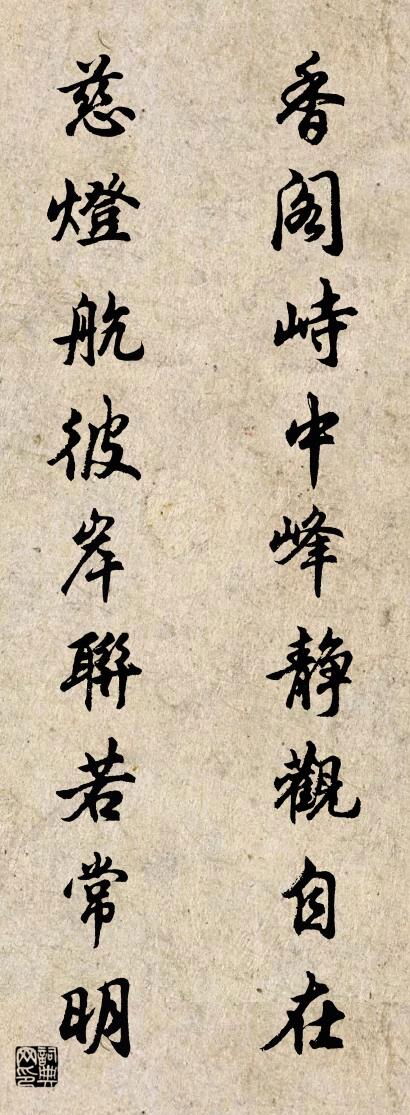 香阁峙中峰静觀自在
慈燈航彼岸聯若常明
詞典网印